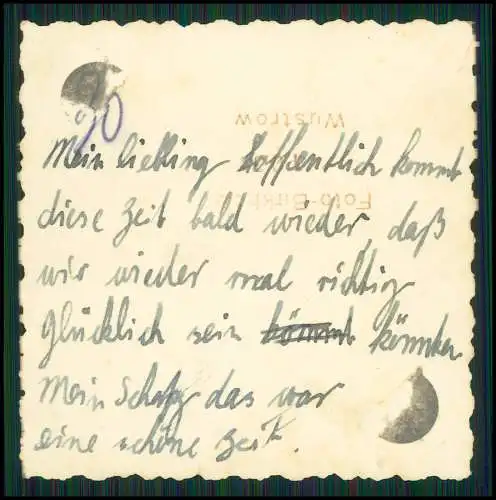 Wustrow
Foto-
10
Mein liebling hoffentlich kommt
diese Zeit bald wieder, daß
wir wieder mal richtig
glücklich sein könnten.
Mein Schatz das war
eine schöne Zeit.